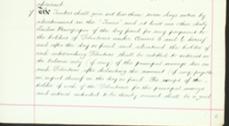 The Trustees shall give not less than seven days notice by
advertisement in the "Times" and at least one other daily
London Newspaper of the day fixed for any payment to
the holders of Debentures under Clauses 6 and 7 hereof
and after the day so fixed and advertised the holders of
each outstanding Debenture shall be entitled to interest on
the balance only (if any) of the principal moneys due on
such Debenture after deducting the amount (if any) payable
in respect thereof on the day so fixed. The receipt of the
holder of each of the Debentures for the principal moneys
and interest intended to be thereby secured shall be a good